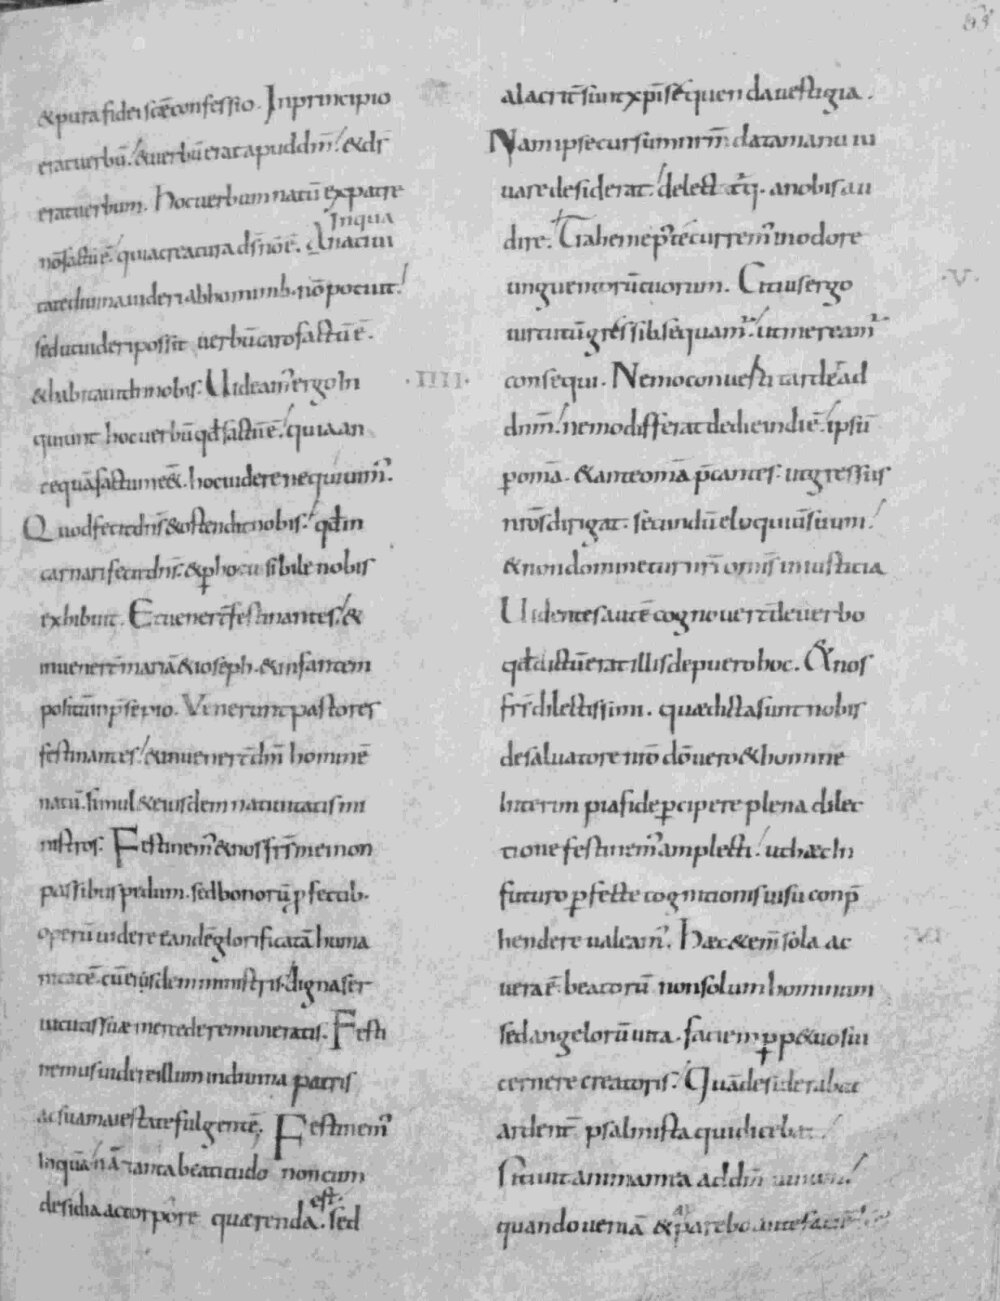 85
&pura fidei scę confessio. In principio
erat uerbū. & uerbū erat apud dm̄. & ds̄
erat uerbum. Hoc uerbum natū ex patre
nō factū ē. quia creatura ds̄ nō ē. In qua
natiuitate diuina uideri ab hominib. nō potuit.
sed ut uideri possit uerbū caro factū ē.
& habitauit in nobis. Uideam᾽ ergo in
quiunt hoc uerbū qđ factū ē. quia an
te quā factum eēt. hoc uidere nequiuim᾽.
Quod fecit dn̄s & ostendit nobis. qđ in
carnari fecit dn̄s. & p hoc uisibile nobis
exhibuit. Et uener̄ festinantes. &
inuener̄ mariā & ioseph. & infantem
positū in p̄sepio. Venerunt pastores
festinantes. & inuener̄ dm̄ hominē
natū. simul & eiusdem natiuitatis mi
nistros. Festinem᾽ & nos frs̄ mei non
passibus pedum. sed bonorū p fectib.
operū uidere eandē glorificatā huma
nitatē cū eiusdem ministris. digna ser
uitutis suæ mercede remuneratis. Festi
nemus uidere illum in diuina patris
ac sua maiestate fulgentē. Festinem᾽
inquā. nā tanta beatitudo non cum
desidia ac torpore quærenda est. sed
alacrit̄ sunt xp̄i seq̄uenda uestigia.
Nam ipse cursum nr̄m data manu iu
uare desiderat. delectatq. a nobis au
dire. Trahe me p̄ te curremʾ in odore
unguentorū tuorum. Citius ergo
uirtutū gressib. sequam᾽. ut meream᾽
consequi. Nemo conuerti tardet ad
dnm̄. nemo differat de die in diē. ipsū
p om̄a. & ante om̄a p̄cantes. ut gressus
nr̄os dirigat. secundū eloquiū suum.
& non dominetur nr̄i omīs iniusticia
Uidentes autē cognouer̄ de uerbo
qđ dictū erat illis de puero hoc. & nos
frs̄ dilectissimi. quæ dicta sunt nobis
de saluatore nr̄o dō uero & homine
interim pia fide p cipere plena dilec
tione festinem᾽ amplecti. ut hæc in
futuro p fecte cognitionis uisu conp̄
hendere ualeam᾽. Hæc &em̄ sola ac
uera ē beatorū non solum hominum
sed angelorū uita. faciem p p&uo sui
cernere creatoris. Quā desiderabat
ardent̄ psalmista qui dicebat.
Sitiuit anima mea ad dm̄ uiuum.
quando ueniā & parebo ante faciē
·IIII·
·V·
·VI·